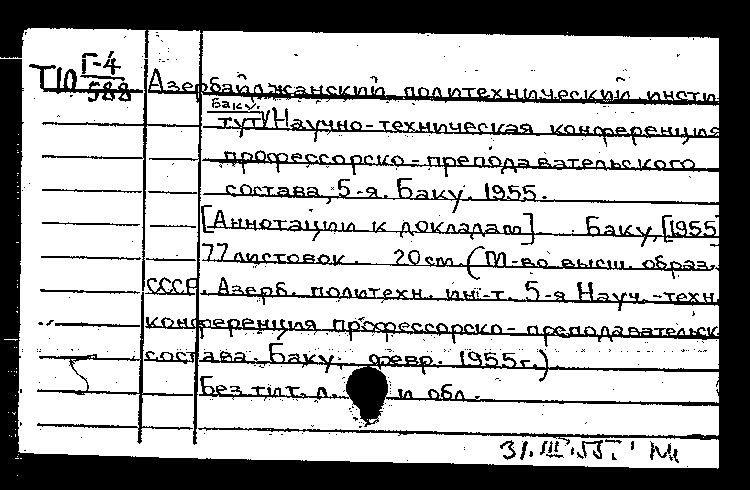 Т10 Г-4/588
Азербайджанский политехнический инсти-
Баку.
тут/Научно-техническая конференция
профессорско-преподавательского
состава, 5-я. Баку. 1955.
[Аннотации к докладам]. Баку, [1955
77 листовок. 20 см. (М-во высш. образ.
СССР. Азерб. политехн. ин-т. 5-я Науч.-техн.
конференция профессорско-преподавательск
состава. Баку. февр. 1955г.)
Без тит. л. и обл.
31.III.55.